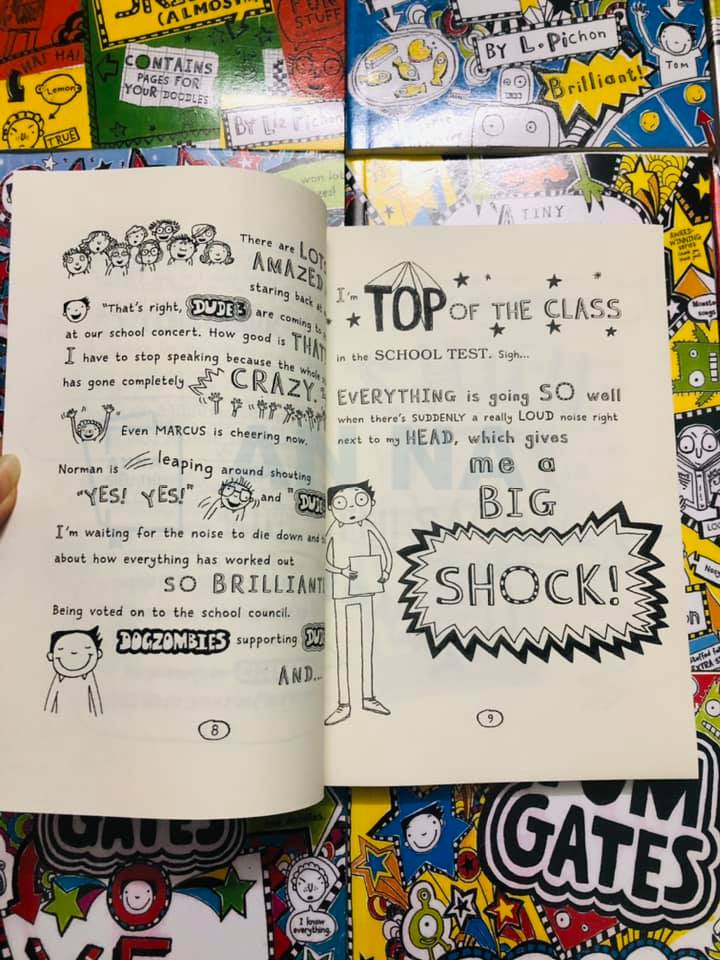 HA! HA!
Lemon
TRUE
(ALMOST)
CONTAINS
PAGES FOR
YOUR DOODLES
FUN
STUFF
By Liz Pichon
By L. Pichon
Brilliant!
TOM
A TINY
AWARD-
WINNING
series
There are LOTS
AMAZED
staring back at
"That's right, DUDE3 are coming to
at our school concert. How good is THAT
I have to stop speaking because the whole
has gone completely CRAZY.
Even MARCUS is cheering now.
Norman is leaping around shouting
"YES! YES!" and "DUDE
I'm waiting for the noise to die down and
about how everything has worked out
SO BRILLIANT
Being voted on to the school council.
DOGZOMBIES supporting DUD
AND...
8
I'm TOP OF THE CLASS
in the SCHOOL TEST. Sigh...
EVERYTHING is going SO well
when there's SUDDENLY a really LOUD noise right
next to my HEAD, which gives
me a
BIG
SHOCK!
9
AN NA
Monster
songs
GATES
I know
everything.
TOM
GATES